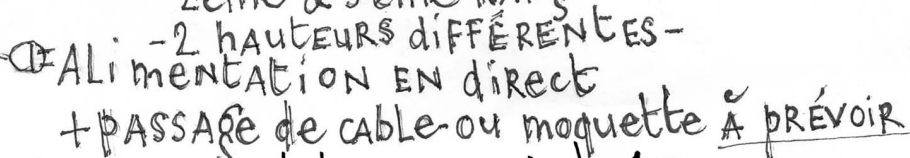 -2 hAUtEURS diFFÉRENtES-
ALimENtAtiON EN diRect
+ pASSAge de cABLe ou moquette À pRÉVOiR